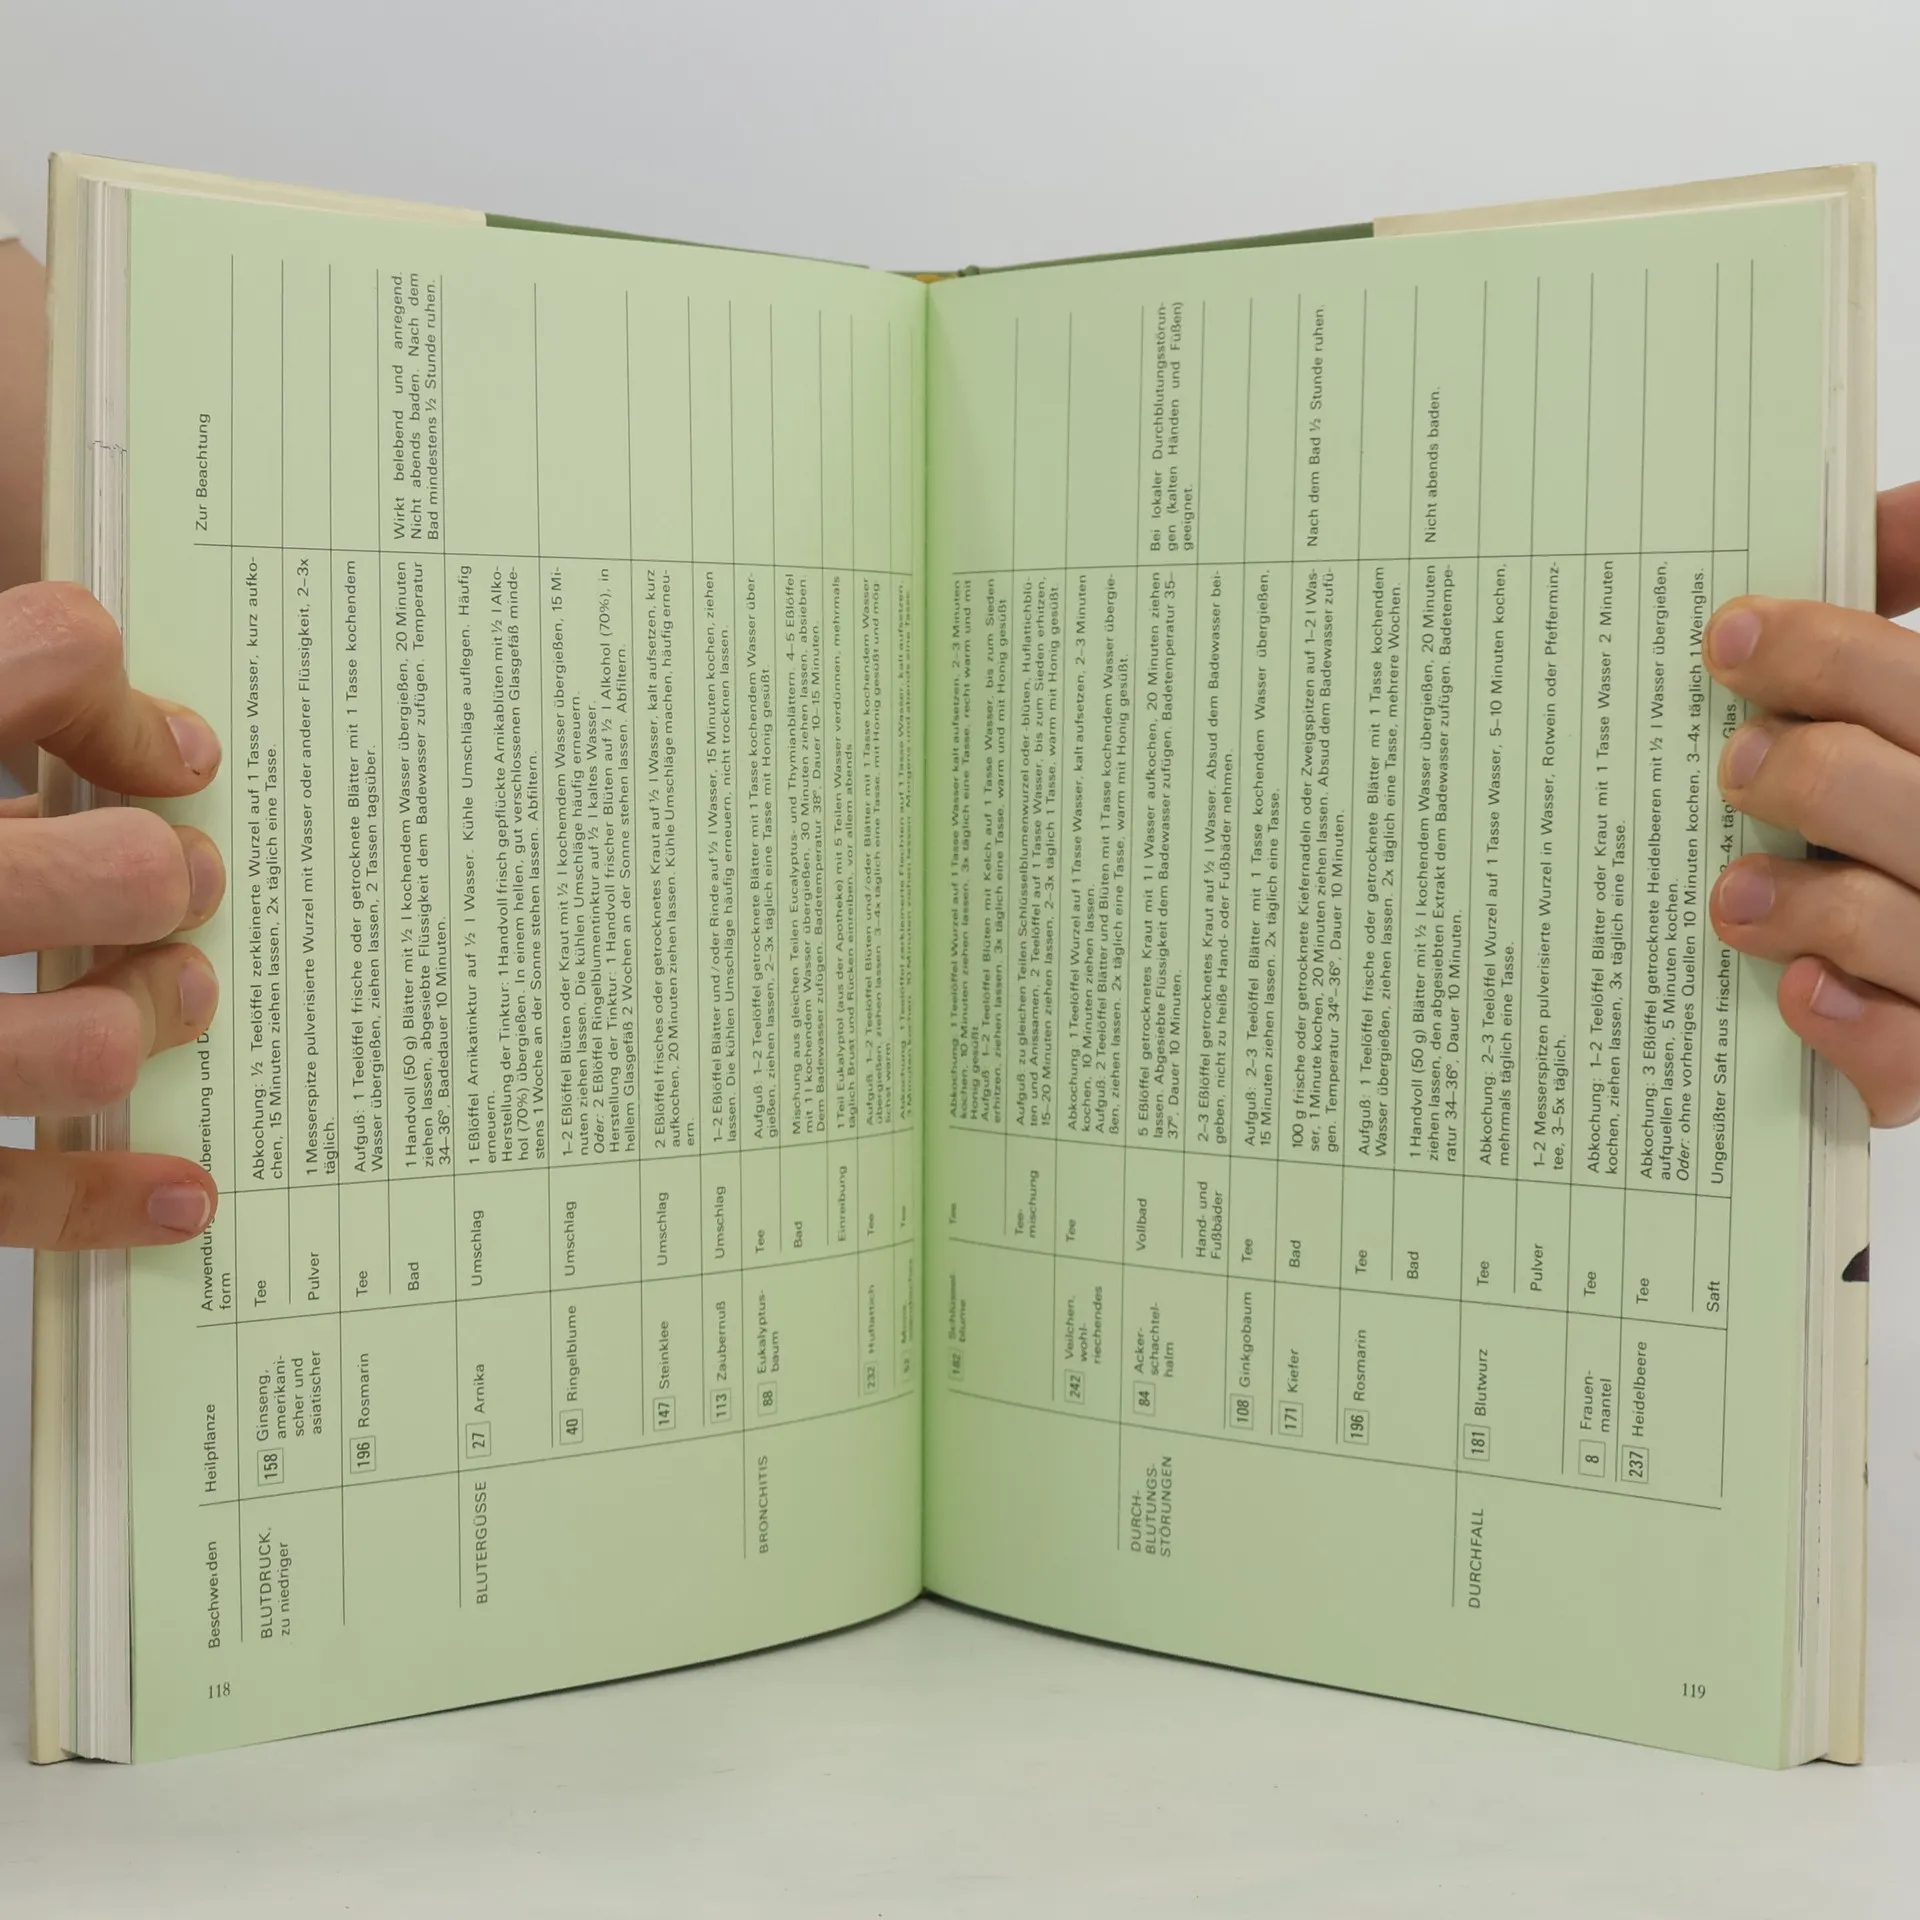 118
Beschwerden
Heilpflanze
Anwendungs-
form
Zubereitung und
Zur Beachtung
BLUTDRUCK,
zu niedriger
158 Ginseng,
amerikani-
scher und
asiatischer
Tee
Abkochung: ½ Teelöffel zerkleinerte Wurzel auf 1 Tasse Wasser, kurz aufko-
chen, 15 Minuten ziehen lassen, 2x täglich eine Tasse.
Pulver
1 Messerspitze pulverisierte Wurzel mit Wasser oder anderer Flüssigkeit, 2–3x
täglich.
196 Rosmarin
Tee
Aufguß: 1 Teelöffel frische oder getrocknete Blätter mit 1 Tasse kochendem
Wasser übergießen, ziehen lassen, 2 Tassen tagsüber.
Bad
1 Handvoll (50 g) Blätter mit ½ l kochendem Wasser übergießen, 20 Minuten
ziehen lassen, abgesiebte Flüssigkeit dem Badewasser zufügen. Temperatur
34–36°, Badedauer 10 Minuten.
Wirkt belebend und anregend.
Nicht abends baden. Nach dem
Bad mindestens ½ Stunde ruhen.
BLUTERGÜSSE
27 Arnika
Umschlag
1 Eßlöffel Arnikatinktur auf ½ l Wasser. Kühle Umschläge auflegen. Häufig
erneuern.
Herstellung der Tinktur: 1 Handvoll frisch gepflückte Arnikablüten mit ½ l Alko-
hol (70%) übergießen. In einem hellen, gut verschlossenen Glasgefäß minde-
stens 1 Woche an der Sonne stehen lassen. Abfiltern.
40 Ringelblume
Umschlag
1–2 Eßlöffel Blüten oder Kraut mit ½ l kochendem Wasser übergießen, 15 Mi-
nuten ziehen lassen. Die kühlen Umschläge häufig erneuern.
Oder: 2 Eßlöffel Ringelblumentinktur auf ½ l kaltes Wasser.
Herstellung der Tinktur: 1 Handvoll frischer Blüten auf ½ l Alkohol (70%), in
hellem Glasgefäß 2 Wochen an der Sonne stehen lassen. Abfiltern.
147 Steinklee
Umschlag
2 Eßlöffel frisches oder getrocknetes Kraut auf ½ l Wasser, kalt aufsetzen, kurz
aufkochen, 20 Minuten ziehen lassen. Kühle Umschläge machen, häufig erneu-
ern.
113 Zaubernuß
Umschlag
1–2 Eßlöffel Blätter und/oder Rinde auf ½ l Wasser, 15 Minuten kochen, ziehen
lassen. Die kühlen Umschläge häufig erneuern, nicht trocknen lassen.
BRONCHITIS
88 Eukalyptus-
baum
Tee
Aufguß: 1–2 Teelöffel getrocknete Blätter mit 1 Tasse kochendem Wasser über-
gießen, ziehen lassen, 2–3x täglich eine Tasse mit Honig gesüßt.
Bad
Mischung aus gleichen Teilen Eucalyptus- und Thymianblättern. 4–5 Eßlöffel
mit 1 l kochendem Wasser übergießen, 30 Minuten ziehen lassen, absieben.
Dem Badewasser zufügen. Badetemperatur 38°, Dauer 10–15 Minuten.
Einreibung
1 Teil Eukalyptol (aus der Apotheke) mit 5 Teilen Wasser verdünnen, mehrmals
täglich Brust und Rücken einreiben, vor allem abends.
232 Huflattich
Tee
Aufguß: 1–2 Teelöffel Blüten und/oder Blätter mit 1 Tasse kochendem Wasser
übergießen, ziehen lassen, 3–4x täglich eine Tasse, mit Honig gesüßt und mög-
lichst warm.
52
Tee
Abkochung: 1 Teelöffel zerkleinerte Flechten auf 1 Tasse Wasser, kalt aufsetzen,
182 Schlüssel-
blume
Tee
Abkochung: 1 Teelöffel Wurzel auf 1 Tasse Wasser kalt aufsetzen, 2–3 Minuten
kochen, 10 Minuten ziehen lassen, 3x täglich eine Tasse, recht warm und mit
Honig gesüßt.
Aufguß: 1–2 Teelöffel Blüten mit Kelch auf 1 Tasse Wasser, bis zum Sieden
erhitzen, ziehen lassen, 3x täglich eine Tasse, warm und mit Honig gesüßt.
Tee-
mischung
Aufguß: zu gleichen Teilen Schlüsselblumenwurzel oder -blüten, Huflattichblü-
ten und Anissamen. 2 Teelöffel auf 1 Tasse Wasser, bis zum Sieden erhitzen,
15–20 Minuten ziehen lassen, 2–3x täglich 1 Tasse, warm mit Honig gesüßt.
242 Veilchen,
wohl-
riechendes
Tee
Abkochung: 1 Teelöffel Wurzel auf 1 Tasse Wasser, kalt aufsetzen, 2–3 Minuten
kochen, 10 Minuten ziehen lassen.
Aufguß: 2 Teelöffel Blätter und Blüten mit 1 Tasse kochendem Wasser übergie-
ßen, ziehen lassen, 2x täglich eine Tasse, warm mit Honig gesüßt.
DURCH-
BLUTUNGS-
STÖRUNGEN
84 Acker-
schachtel-
halm
Vollbad
5 Eßlöffel getrocknetes Kraut mit 1 l Wasser aufkochen, 20 Minuten ziehen
lassen. Abgesiebte Flüssigkeit dem Badewasser zufügen. Badetemperatur 35–
37°, Dauer 10 Minuten.
Bei lokaler Durchblutungsstörun-
gen (kalten Händen und Füßen)
geeignet.
Hand- und
Fußbäder
2–3 Eßlöffel getrocknetes Kraut auf ½ l Wasser. Absud dem Badewasser bei-
geben, nicht zu heiße Hand- oder Fußbäder nehmen.
108 Ginkgobaum
Tee
Aufguß: 2–3 Teelöffel Blätter mit 1 Tasse kochendem Wasser übergießen,
15 Minuten ziehen lassen, 2x täglich eine Tasse.
171 Kiefer
Bad
100 g frische oder getrocknete Kiefernadeln oder Zweigspitzen auf 1–2 l Was-
ser, 1 Minute kochen, 20 Minuten ziehen lassen. Absud dem Badewasser zufü-
gen. Temperatur 34°–36°, Dauer 10 Minuten.
Nach dem Bad ½ Stunde ruhen.
196 Rosmarin
Tee
Aufguß: 1 Teelöffel frische oder getrocknete Blätter mit 1 Tasse kochendem
Wasser übergießen, ziehen lassen. 2x täglich eine Tasse, mehrere Wochen.
Bad
1 Handvoll (50 g) Blätter mit ½ l kochendem Wasser übergießen, 20 Minuten
ziehen lassen, den abgesiebten Extrakt dem Badewasser zufügen. Badetempe-
ratur 34–36°, Dauer 10 Minuten.
Nicht abends baden.
DURCHFALL
181 Blutwurz
Tee
Abkochung: 2–3 Teelöffel Wurzel auf 1 Tasse Wasser, 5–10 Minuten kochen,
mehrmals täglich eine Tasse.
Pulver
1–2 Messerspitzen pulverisierte Wurzel in Wasser, Rotwein oder Pfefferminz-
tee, 3–5x täglich.
8 Frauen-
mantel
Tee
Abkochung: 1–2 Teelöffel Blätter oder Kraut mit 1 Tasse Wasser 2 Minuten
kochen, ziehen lassen, 3x täglich eine Tasse.
237 Heidelbeere
Tee
Abkochung: 3 Eßlöffel getrocknete Heidelbeeren mit ½ l Wasser übergießen,
aufquellen lassen, 5 Minuten kochen.
Oder: ohne vorheriges Quellen 10 Minuten kochen, 3–4x täglich 1 Weinglas.
Saft
Ungesüßter Saft aus frischen
Glas.
119